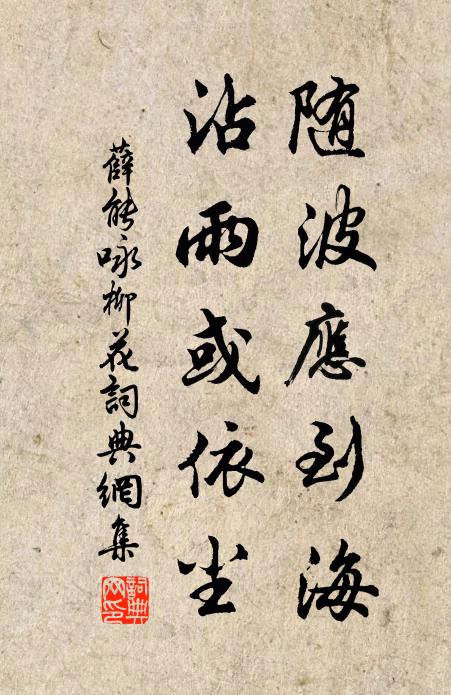 随波應到海
沾雨或依尘
薛能咏柳花詞典網集
詞典网印